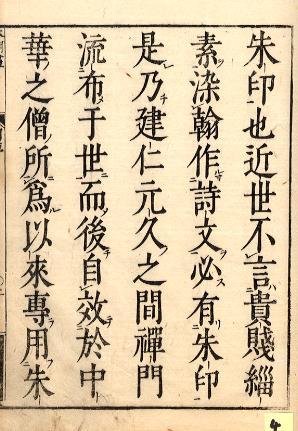 朱印也近世不言貴賤緇
素染翰作詩文必有朱印
是乃建仁元久之間禪門
流布于世而後自效於中
華之僧所為以來專用朱
4